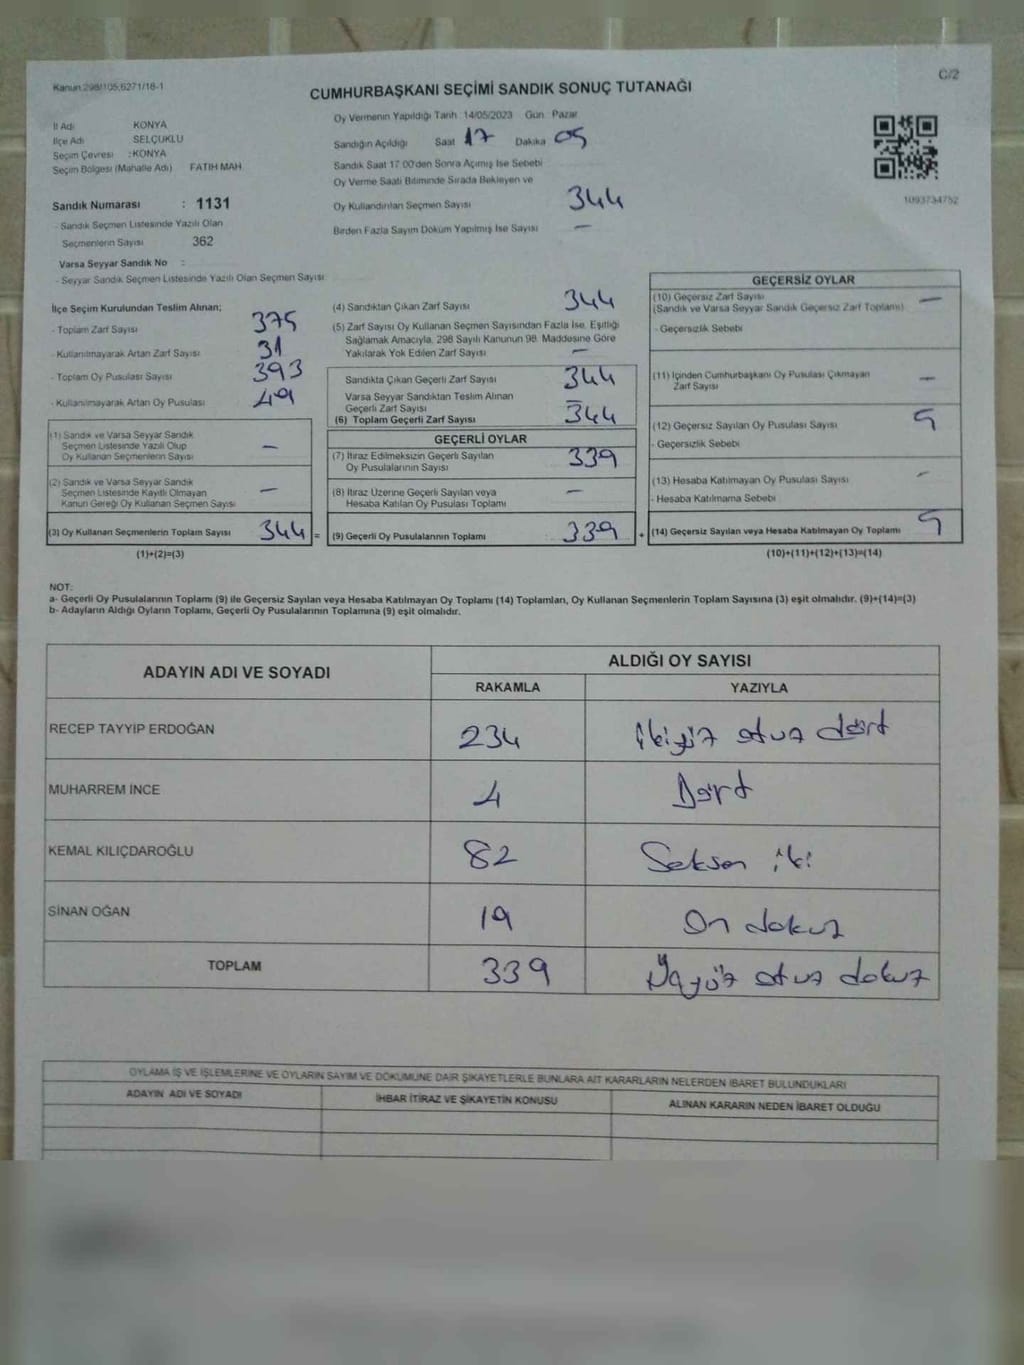 Kanun 298/105,6271/18-1
C/2
CUMHURBAŞKANI SEÇİMİ SANDIK SONUÇ TUTANAĞI
İl Adı KONYA
İlçe Adı SELÇUKLU
Seçim Çevresi : KONYA
Seçim Bölgesi (Mahalle Adı) FATİH MAH.
Sandık Numarası : 1131
- Sandık Seçmen Listesinde Yazılı Olan
Seçmenlerin Sayısı 362
Varsa Seyyar Sandık No :
- Seyyar Sandık Seçmen Listesinde Yazılı Olan Seçmen Sayısı
Oy Vermenin Yapıldığı Tarih 14/05/2023 Gün Pazar
Sandığın Açıldığı Saat 17 Dakika 05
Sandık Saat 17.00'den Sonra Açılmış İse Sebebi
Oy Verme Saati Bitiminde Sırada Bekleyen ve
Oy Kullandırılan Seçmen Sayısı 344
Birden Fazla Sayım Döküm Yapılmış İse Sayısı —
1093734752
İlçe Seçim Kurulundan Teslim Alınan;
- Toplam Zarf Sayısı 375
- Kullanılmayarak Artan Zarf Sayısı 31
- Toplam Oy Pusulası Sayısı 393
- Kullanılmayarak Artan Oy Pusulası 49
(1) Sandık ve Varsa Seyyar Sandık
Seçmen Listesinde Yazılı Olup
Oy Kullanan Seçmenlerin Sayısı —
(2) Sandık ve Varsa Seyyar Sandık
Seçmen Listesinde Kayıtlı Olmayan
Kanun Gereği Oy Kullanan Seçmen Sayısı —
(3) Oy Kullanan Seçmenlerin Toplam Sayısı 344 =
(1)+(2)=(3)
(4) Sandıktan Çıkan Zarf Sayısı 344
(5) Zarf Sayısı Oy Kullanan Seçmen Sayısından Fazla İse, Eşitliği
Sağlamak Amacıyla, 298 Sayılı Kanunun 98. Maddesine Göre
Yakılarak Yok Edilen Zarf Sayısı —
Sandıkta Çıkan Geçerli Zarf Sayısı 344
Varsa Seyyar Sandıktan Teslim Alınan
Geçerli Zarf Sayısı —
(6) Toplam Geçerli Zarf Sayısı 344
GEÇERLİ OYLAR
(7) İtiraz Edilmeksizin Geçerli Sayılan
Oy Pusulalarının Sayısı 339
(8) İtiraz Üzerine Geçerli Sayılan veya
Hesaba Katılan Oy Pusulası Toplamı —
(9) Geçerli Oy Pusulalarının Toplamı : 339 +
GEÇERSİZ OYLAR
(10) Geçersiz Zarf Sayısı —
(Sandık ve Varsa Seyyar Sandık Geçersiz Zarf Toplamı)
- Geçersizlik Sebebi
(11) İçinden Cumhurbaşkanı Oy Pusulası Çıkmayan
Zarf Sayısı —
(12) Geçersiz Sayılan Oy Pusulası Sayısı 5
- Geçersizlik Sebebi
(13) Hesaba Katılmayan Oy Pusulası Sayısı —
- Hesaba Katılmama Sebebi
(14) Geçersiz Sayılan veya Hesaba Katılmayan Oy Toplamı 5
(10)+(11)+(12)+(13)=(14)
NOT:
a- Geçerli Oy Pusulalarının Toplamı (9) ile Geçersiz Sayılan veya Hesaba Katılmayan Oy Toplamı (14) Toplamları, Oy Kullanan Seçmenlerin Toplam Sayısına (3) eşit olmalıdır. (9)+(14)=(3)
b- Adayların Aldığı Oyların Toplamı, Geçerli Oy Pusulalarının Toplamına (9) eşit olmalıdır.
ADAYIN ADI VE SOYADI ALDIĞI OY SAYISI
RAKAMLA YAZIYLA
RECEP TAYYİP ERDOĞAN 234 ikiyüz otuz dört
MUHARREM İNCE 4 Dört
KEMAL KILIÇDAROĞLU 82 Seksen iki
SİNAN OĞAN 19 On dokuz
TOPLAM 339 Üçyüz otuz dokuz
OYLAMA İŞ VE İŞLEMLERİNE VE OYLARIN SAYIM VE DÖKÜMÜNE DAİR ŞİKAYETLERLE BUNLARA AİT KARARLARIN NELERDEN İBARET BULUNDUKLARI
ADAYIN ADI VE SOYADI İHBAR İTİRAZ VE ŞİKAYETİN KONUSU ALINAN KARARIN NEDEN İBARET OLDUĞU